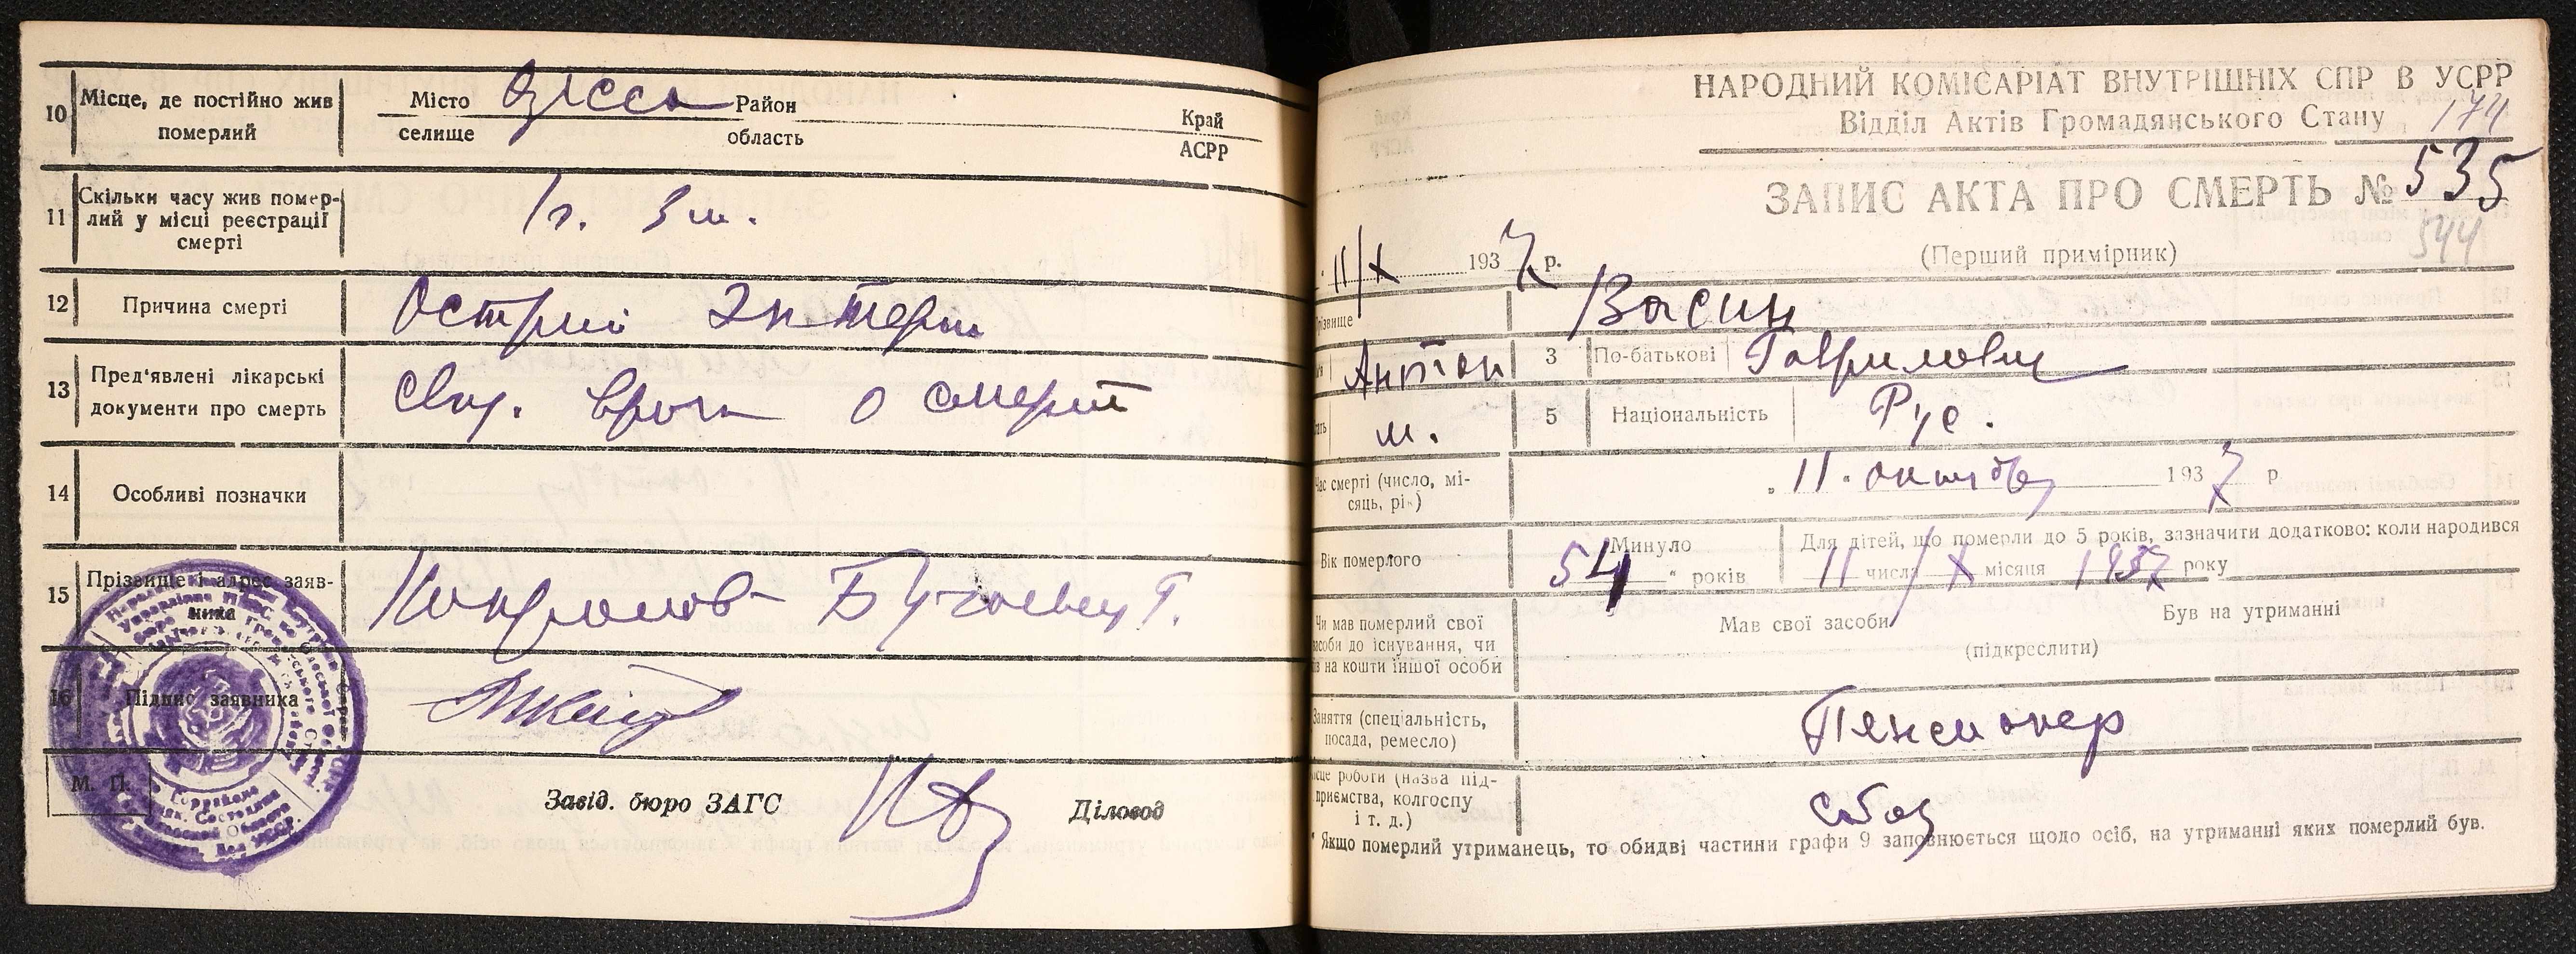 10 Місце, де постійно жив померлий
Місто Одесса Район Край
селище область АСРР
11 Скільки часу жив помер-
лий у місці реєстрації
смерті
1 г. 3 м.
12 Причина смерті Острий Энтерит
13 Пред'явлені лікарські
документи про смерть
свид. врача о смерти
14 Особливі позначки
15 Прізвище і адрес заяв-
ника
16 Підпис заявника
М. П. Завід. бюро ЗАГС Діловод
НАРОДНИЙ КОМІСАРІАТ ВНУТРІШНІХ СПР В УСРР
Відділ Актів Громадянського Стану 174
ЗАПИС АКТА ПРО СМЕРТЬ № 535
544
(Перший примірник)
11/X 1937 р.
ізвище Васин
Антон 3 По-батькові Гаврилович
м. 5 Національність Рус.
Час смерті (число, мі-
сяць, рік)
11 октября 1937 р
Вік померлого
Минуло
54 років
Для дітей, що померли до 5 років, зазначити додатково: коли народився
11 числа X місяця 1937 року
Чи мав померлий свої
засоби до існування, чи
на кошти іншої особи
Мав свої засоби Був на утриманні
(підкреслити)
Заняття (спеціальність,
посада, ремесло)
Пенсионер
Місце роботи (назва під-
приємства, колгоспу
і т. д.)
собез
* Якщо померлий утриманець, то обидві частини графи 9 заповнюється щодо осіб, на утриманні яких померлий був.